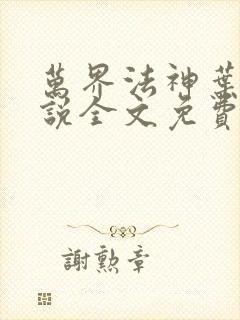 萬界法神葉
說全文免費
謝勲章